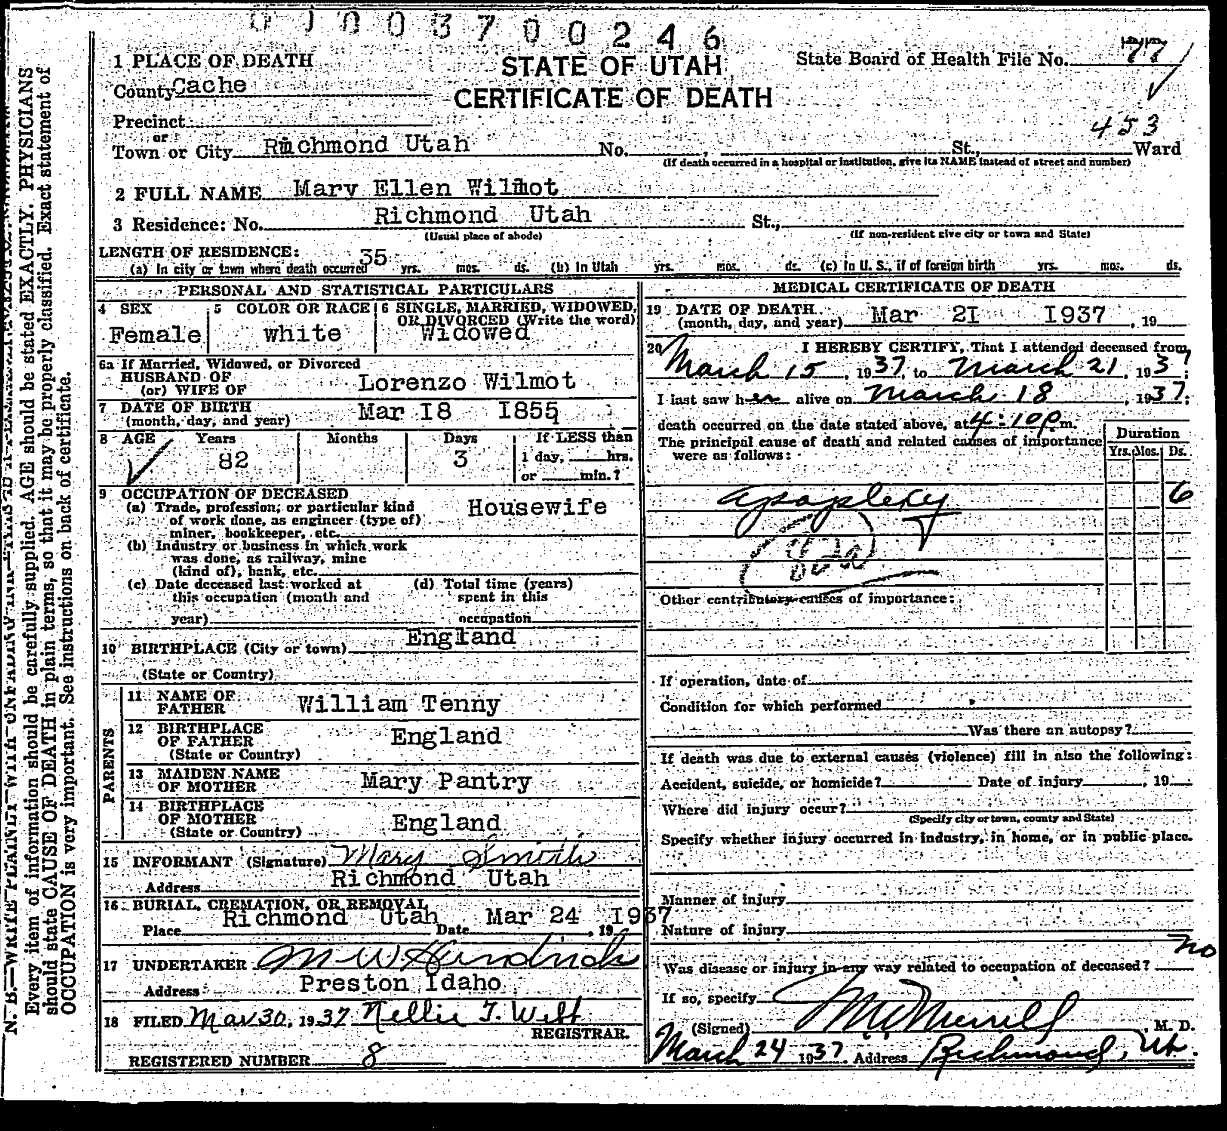 0 1 0 0 3 7 0 0 2 4 6
1 PLACE OF DEATH
STATE OF UTAH
CERTIFICATE OF DEATH
State Board of Health File No. 77
County Cache
Precinct
or
453
Town or City Richmond Utah No. , St., Ward
(If death occurred in a hospital or institution, give its NAME instead of street and number)
2 FULL NAME Mary Ellen Wilmot
3 Residence: No. Richmond Utah St.,
(Usual place of abode) (If non-resident give city or town and State)
LENGTH OF RESIDENCE:
(a) In city or town where death occurred 35 yrs. mos. ds. (b) In Utah yrs. mos. ds. (c) In U. S., if of foreign birth yrs. mos. ds.
PERSONAL AND STATISTICAL PARTICULARS
4 SEX Female
5 COLOR OR RACE white
6 SINGLE, MARRIED, WIDOWED, OR DIVORCED (Write the word) Widowed
6a If Married, Widowed, or Divorced
HUSBAND OF
(or) WIFE OF Lorenzo Wilmot
7 DATE OF BIRTH
(month, day, and year) Mar 18 1855
8 AGE Years Months Days If LESS than
82 3 1 day, hrs.
or min.?
9 OCCUPATION OF DECEASED
(a) Trade, profession, or particular kind
of work done, as engineer (type of)
miner, bookkeeper, etc. Housewife
(b) Industry or business in which work
was done, as railway, mine
(kind of), bank, etc.
(c) Date deceased last worked at
this occupation (month and
year)
(d) Total time (years)
spent in this
occupation
10 BIRTHPLACE (City or town) England
(State or Country)
PARENTS
11 NAME OF
FATHER William Tenny
12 BIRTHPLACE
OF FATHER England
(State or Country)
13 MAIDEN NAME
OF MOTHER Mary Pantry
14 BIRTHPLACE
OF MOTHER England
(State or Country)
15 INFORMANT (Signature) Mary Smith
Address Richmond Utah
16 BURIAL, CREMATION, OR REMOVAL
Place Richmond Utah Date Mar 24 1937, 19
17 UNDERTAKER M W Hendricks
Address Preston Idaho
18 FILED Mar 30, 1937 Nellie T. Welt
REGISTRAR.
REGISTERED NUMBER 8
MEDICAL CERTIFICATE OF DEATH
19 DATE OF DEATH
(month, day, and year) Mar 21 1937, 19
20 I HEREBY CERTIFY, That I attended deceased from
March 15, 1937 to March 21, 193 ;
I last saw her alive on March 18, 1937;
death occurred on the date stated above, at 4:10 p m.
The principal cause of death and related causes of importance
were as follows:
Duration
Yrs. Mos. Ds.
apoplexy 6
82a
Other contributory causes of importance:
If operation, date of
Condition for which performed
Was there an autopsy?
If death was due to external causes (violence) fill in also the following:
Accident, suicide, or homicide? Date of injury , 19
Where did injury occur?
(Specify city or town, county and State)
Specify whether injury occurred in industry, in home, or in public place.
Manner of injury
Nature of injury
Was disease or injury in any way related to occupation of deceased? no
If so, specify
(Signed) M. D.
March 24 1937 Address Richmond, Ut.
N. B.—WRITE PLAINLY WITH UNFADING
Every item of information should be carefully supplied. AGE should be stated EXACTLY. PHYSICIANS
should state CAUSE OF DEATH in plain terms, so that it may be properly classified. Exact statement of
OCCUPATION is very important. See instructions on back of certificate.